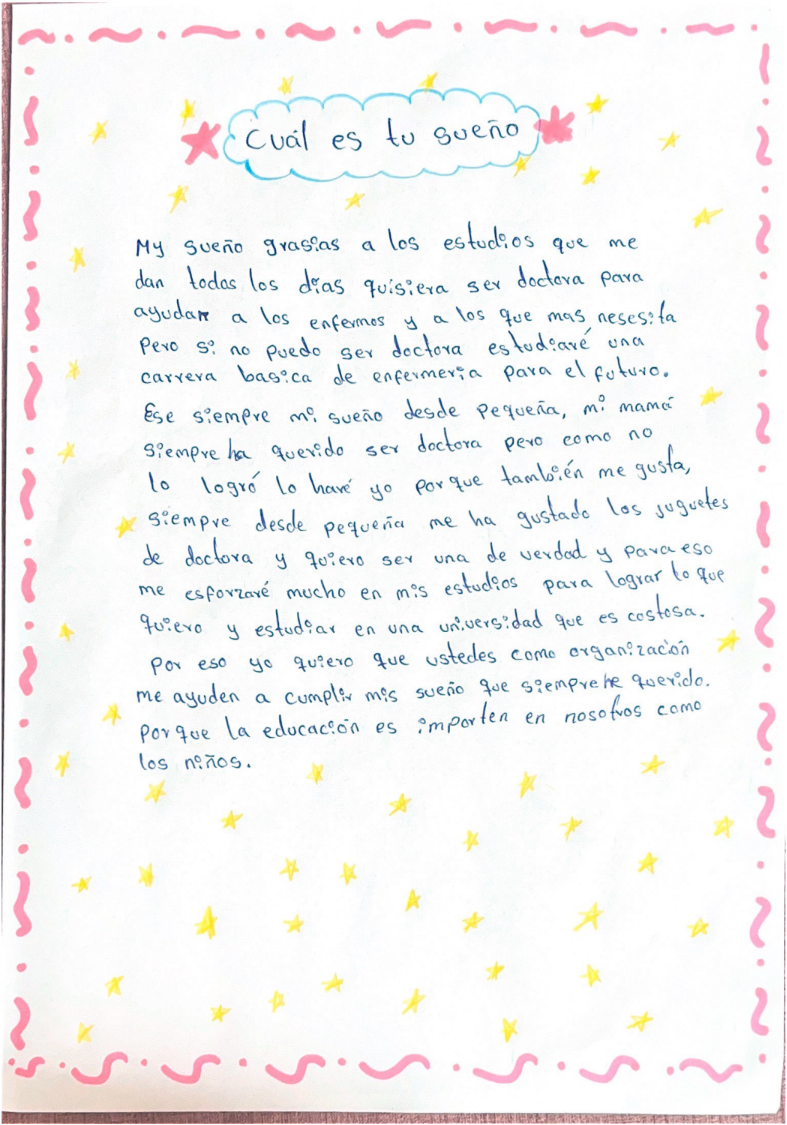 Cuál es tu sueño
My sueño grasias a los estudios que me
dan todos los días quisiera ser doctora para
ayudar a los enfermos y a los que mas nesesita
Pero si no puedo ser doctora estudiaré una
carrera basica de enfermeria para el futuro.
Ese siempre mi sueño desde pequeña, mi mamá
siempre ha querido ser doctora pero como no
lo logró lo haré yo porque también me gusta,
siempre desde pequeña me ha gustado los juguetes
de doctora y quiero ser una de verdad y para eso
me esforzaré mucho en mis estudios para lograr lo que
quiero y estudiar en una universidad que es costosa.
Por eso yo quiero que ustedes como organización
me ayuden a cumplir mis sueño que siempre he querido.
porque la educación es importen en nosotros como
los niños.